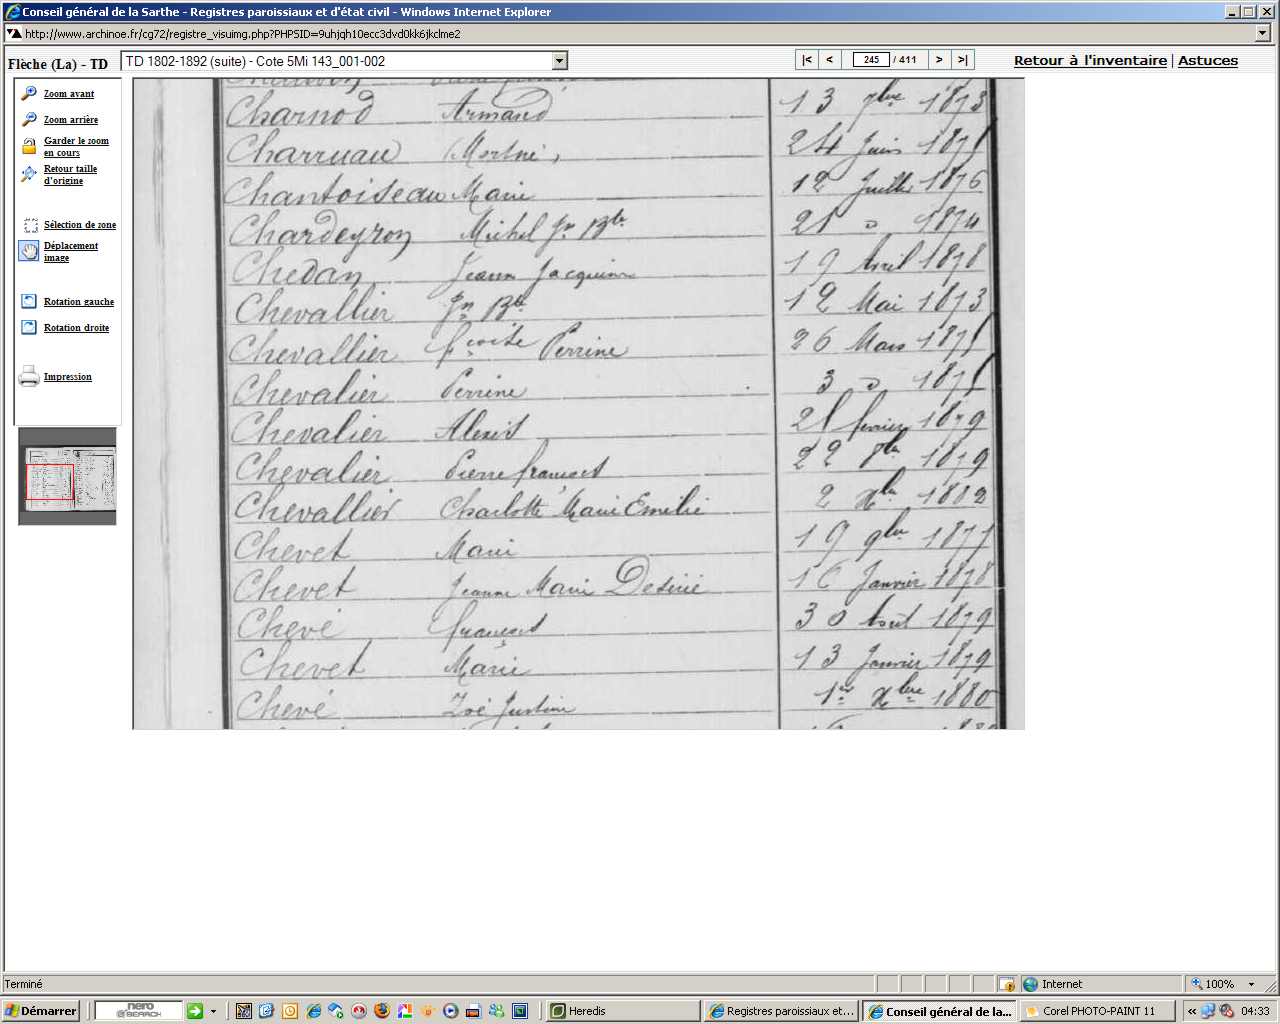 Conseil général de la Sarthe - Registres paroissiaux et d'état civil - Windows Internet Explorer
http://www.archinoe.fr/cg72/registre_visuimg.php?PHPSID=9uhjqh10ecc3dvd0kk6jkclme2
Flèche (La) - TD TD 1802-1892 (suite) - Cote 5Mi 143_001-002 |< < 245 / 411 > >| Retour à l'inventaire | Astuces
Zoom avant
Zoom arrière
Garder le zoom
en cours
Retour taille
d'origine
Sélection de zone
Déplacement
image
Rotation gauche
Rotation droite
Impression
Charnod Armand 13 7bre 1873
Charruau (Mortné) 24 Juin 1875
Chantoiseau Marie 12 Juillet 1876
Chardeyron Michel Jn Bte 21 d 1874
Chedan Jeanne Jacquine 19 Avril 1878
Chevallier Jn Bte 12 Mai 1873
Chevallier fcoise Perrine 26 Mars 1875
Chevalier Perrine 3 d 1875
Chevalier Alexis 21 février 1879
Chevalier Pierre françois 22 1879
Chevallier Charlotte Marie Emilie 2 Xbre 1882
Chevet Marie 19 9bre 1877
Chevet Jeanne Marie Desirée 16 Janvier 1878
Chevé françois 30 Août 1879
Chevet Marie 13 Janvier 1879
Chevé Zoé Justine 1er Xbre 1880
Terminé Internet 100%
Démarrer nero SEARCH Heredis Registres paroissiaux et... Conseil général de la... Corel PHOTO-PAINT 11 « 04:33